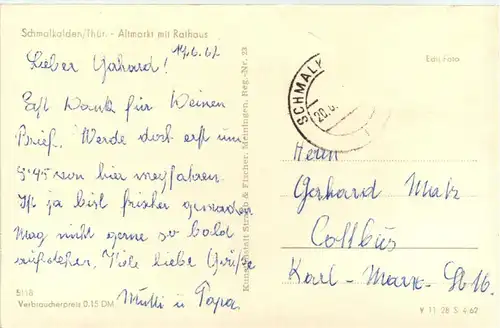 Schmalkalden/Thür. - Altmarkt mit Rathaus
19.6.62
Lieber Gerhard!
Erst Dank für Deinen
Brief. Werde dort erst um
5⁴⁵ von hier wegfahren
Ist ja bist frischer geworden
Mag nicht gerne so bald
aufstehen. Viele liebe Grüße
Mutti u Papa
5118
Verbraucherpreis 0.15 DM
Kunstanstalt Straub & Fischer, Meiningen, Reg.-Nr. 23
Echt Foto
SCHMALK
20.6.
Herrn
Gerhard Matz
Cottbus
Karl-Marx-Str 16.
V 11 28 S 4/62